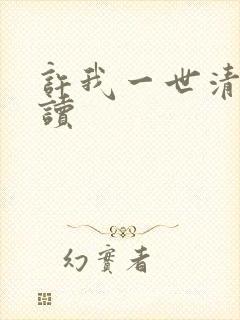 許我一世清
讀
幻實者